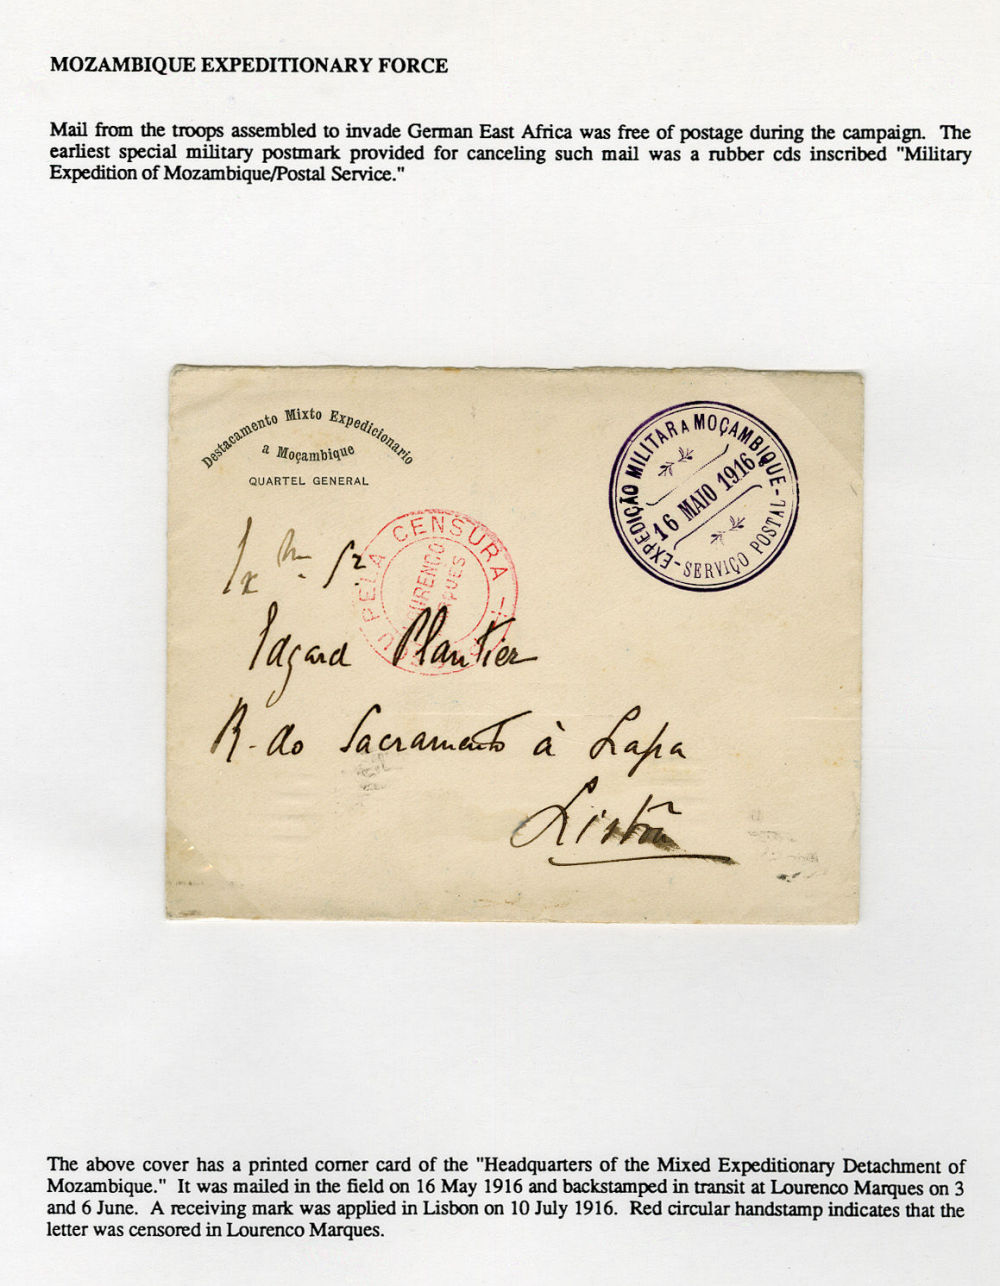 MOZAMBIQUE EXPEDITIONARY FORCE
Mail from the troops assembled to invade German East Africa was free of postage during the campaign. The
earliest special military postmark provided for canceling such mail was a rubber cds inscribed "Military
Expedition of Mozambique/Postal Service."
Destacamento Mixto Expedicionario
a Moçambique
QUARTEL GENERAL
EXPEDIÇÃO MILITAR A MOÇAMBIQUE
16 MAIO 1916
- SERVIÇO POSTAL -
PELA CENSURA
Exmo Sr.
Edgard Plantier
R. do Sacramento à Lapa
Lisbôa
The above cover has a printed corner card of the "Headquarters of the Mixed Expeditionary Detachment of
Mozambique." It was mailed in the field on 16 May 1916 and backstamped in transit at Lourenco Marques on 3
and 6 June. A receiving mark was applied in Lisbon on 10 July 1916. Red circular handstamp indicates that the
letter was censored in Lourenco Marques.